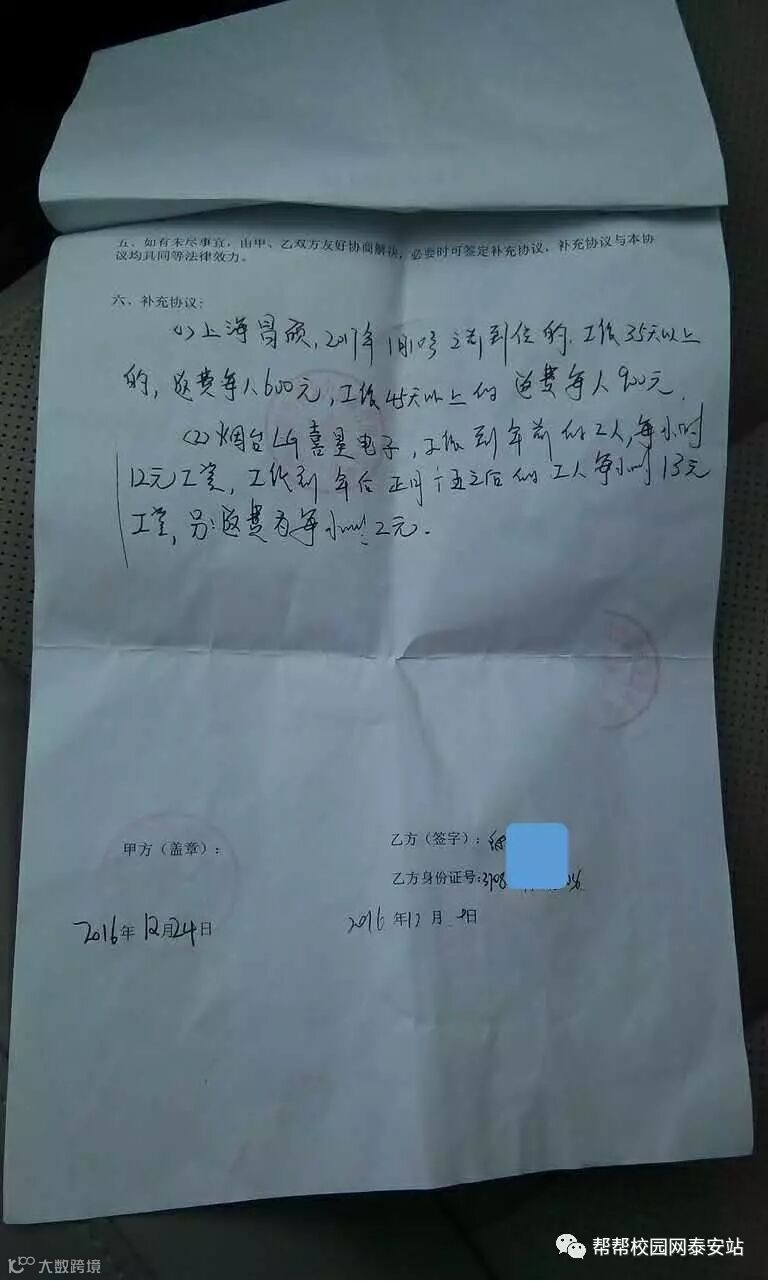 五、如有未尽事宜，由甲、乙双方友好协商解决，必要时可签定补充协议，补充协议与本协
议均具同等法律效力。
六、补充协议：
(1)上海昌硕，2017年1月10号之前到位的，工作35天以上
的，返费每人600元，工作45天以上的 返费每人900元。
(2)烟台LG喜星电子，工作到年前的工人，每小时
12元工资，工作到年后正月十五之后的工人每小时13元
工资，另：返费为每小时：2元。
甲方（盖章）：
乙方（签字）：
乙方身份证号：3708
2016年12月24日
2016年12月 日
大数跨境
帮帮校园网泰安站